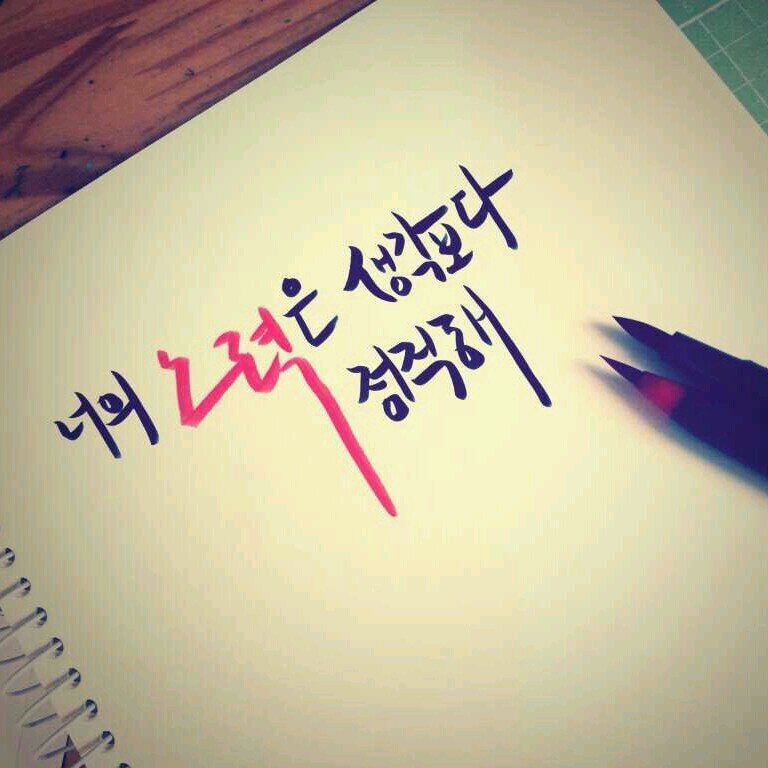 너의 노력은 생각보다
정직해